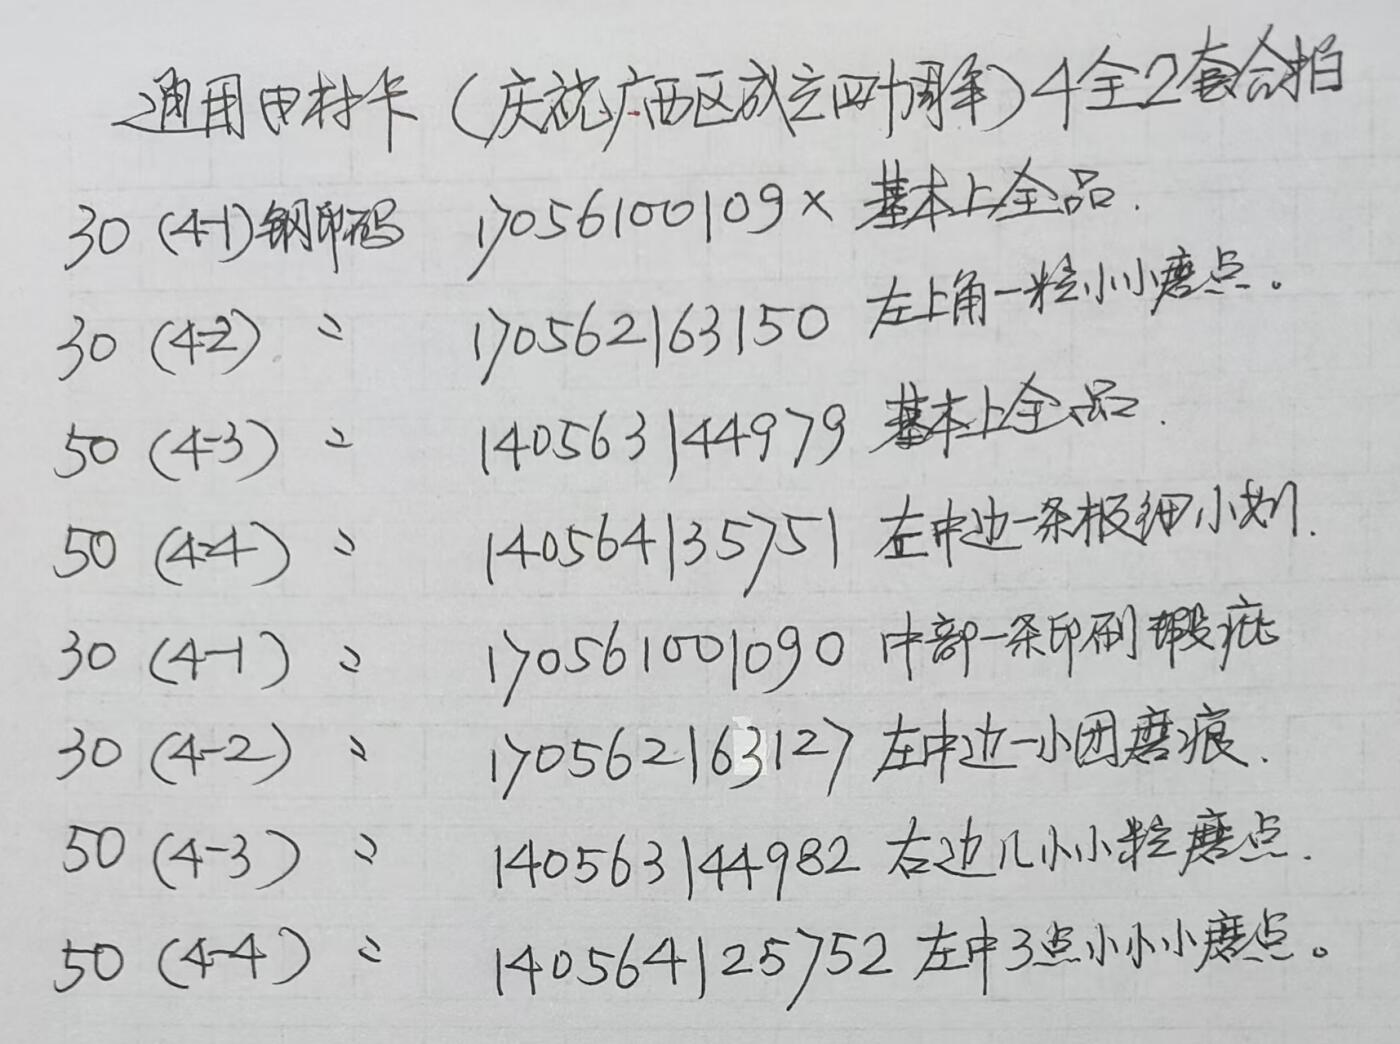 通用田村卡（庆祝广西区成立四十周年）4全2套合拍
30 (4-1) 钢印码 17056100109× 基本上全品.
30 (4-2) 〃 170562163150 左上角一粒小小磨点。
50 (4-3) 〃 140563144979 基本上全品.
50 (4-4) 〃 140564135751 左中边一条极细小划.
30 (4-1) 〃 170561001090 中部一条印刷瑕疵
30 (4-2) 〃 170562163127 左中边一小团磨痕.
50 (4-3) 〃 140563144982 右边几小小粒磨点.
50 (4-4) 〃 140564125752 左中3点小小小磨点。